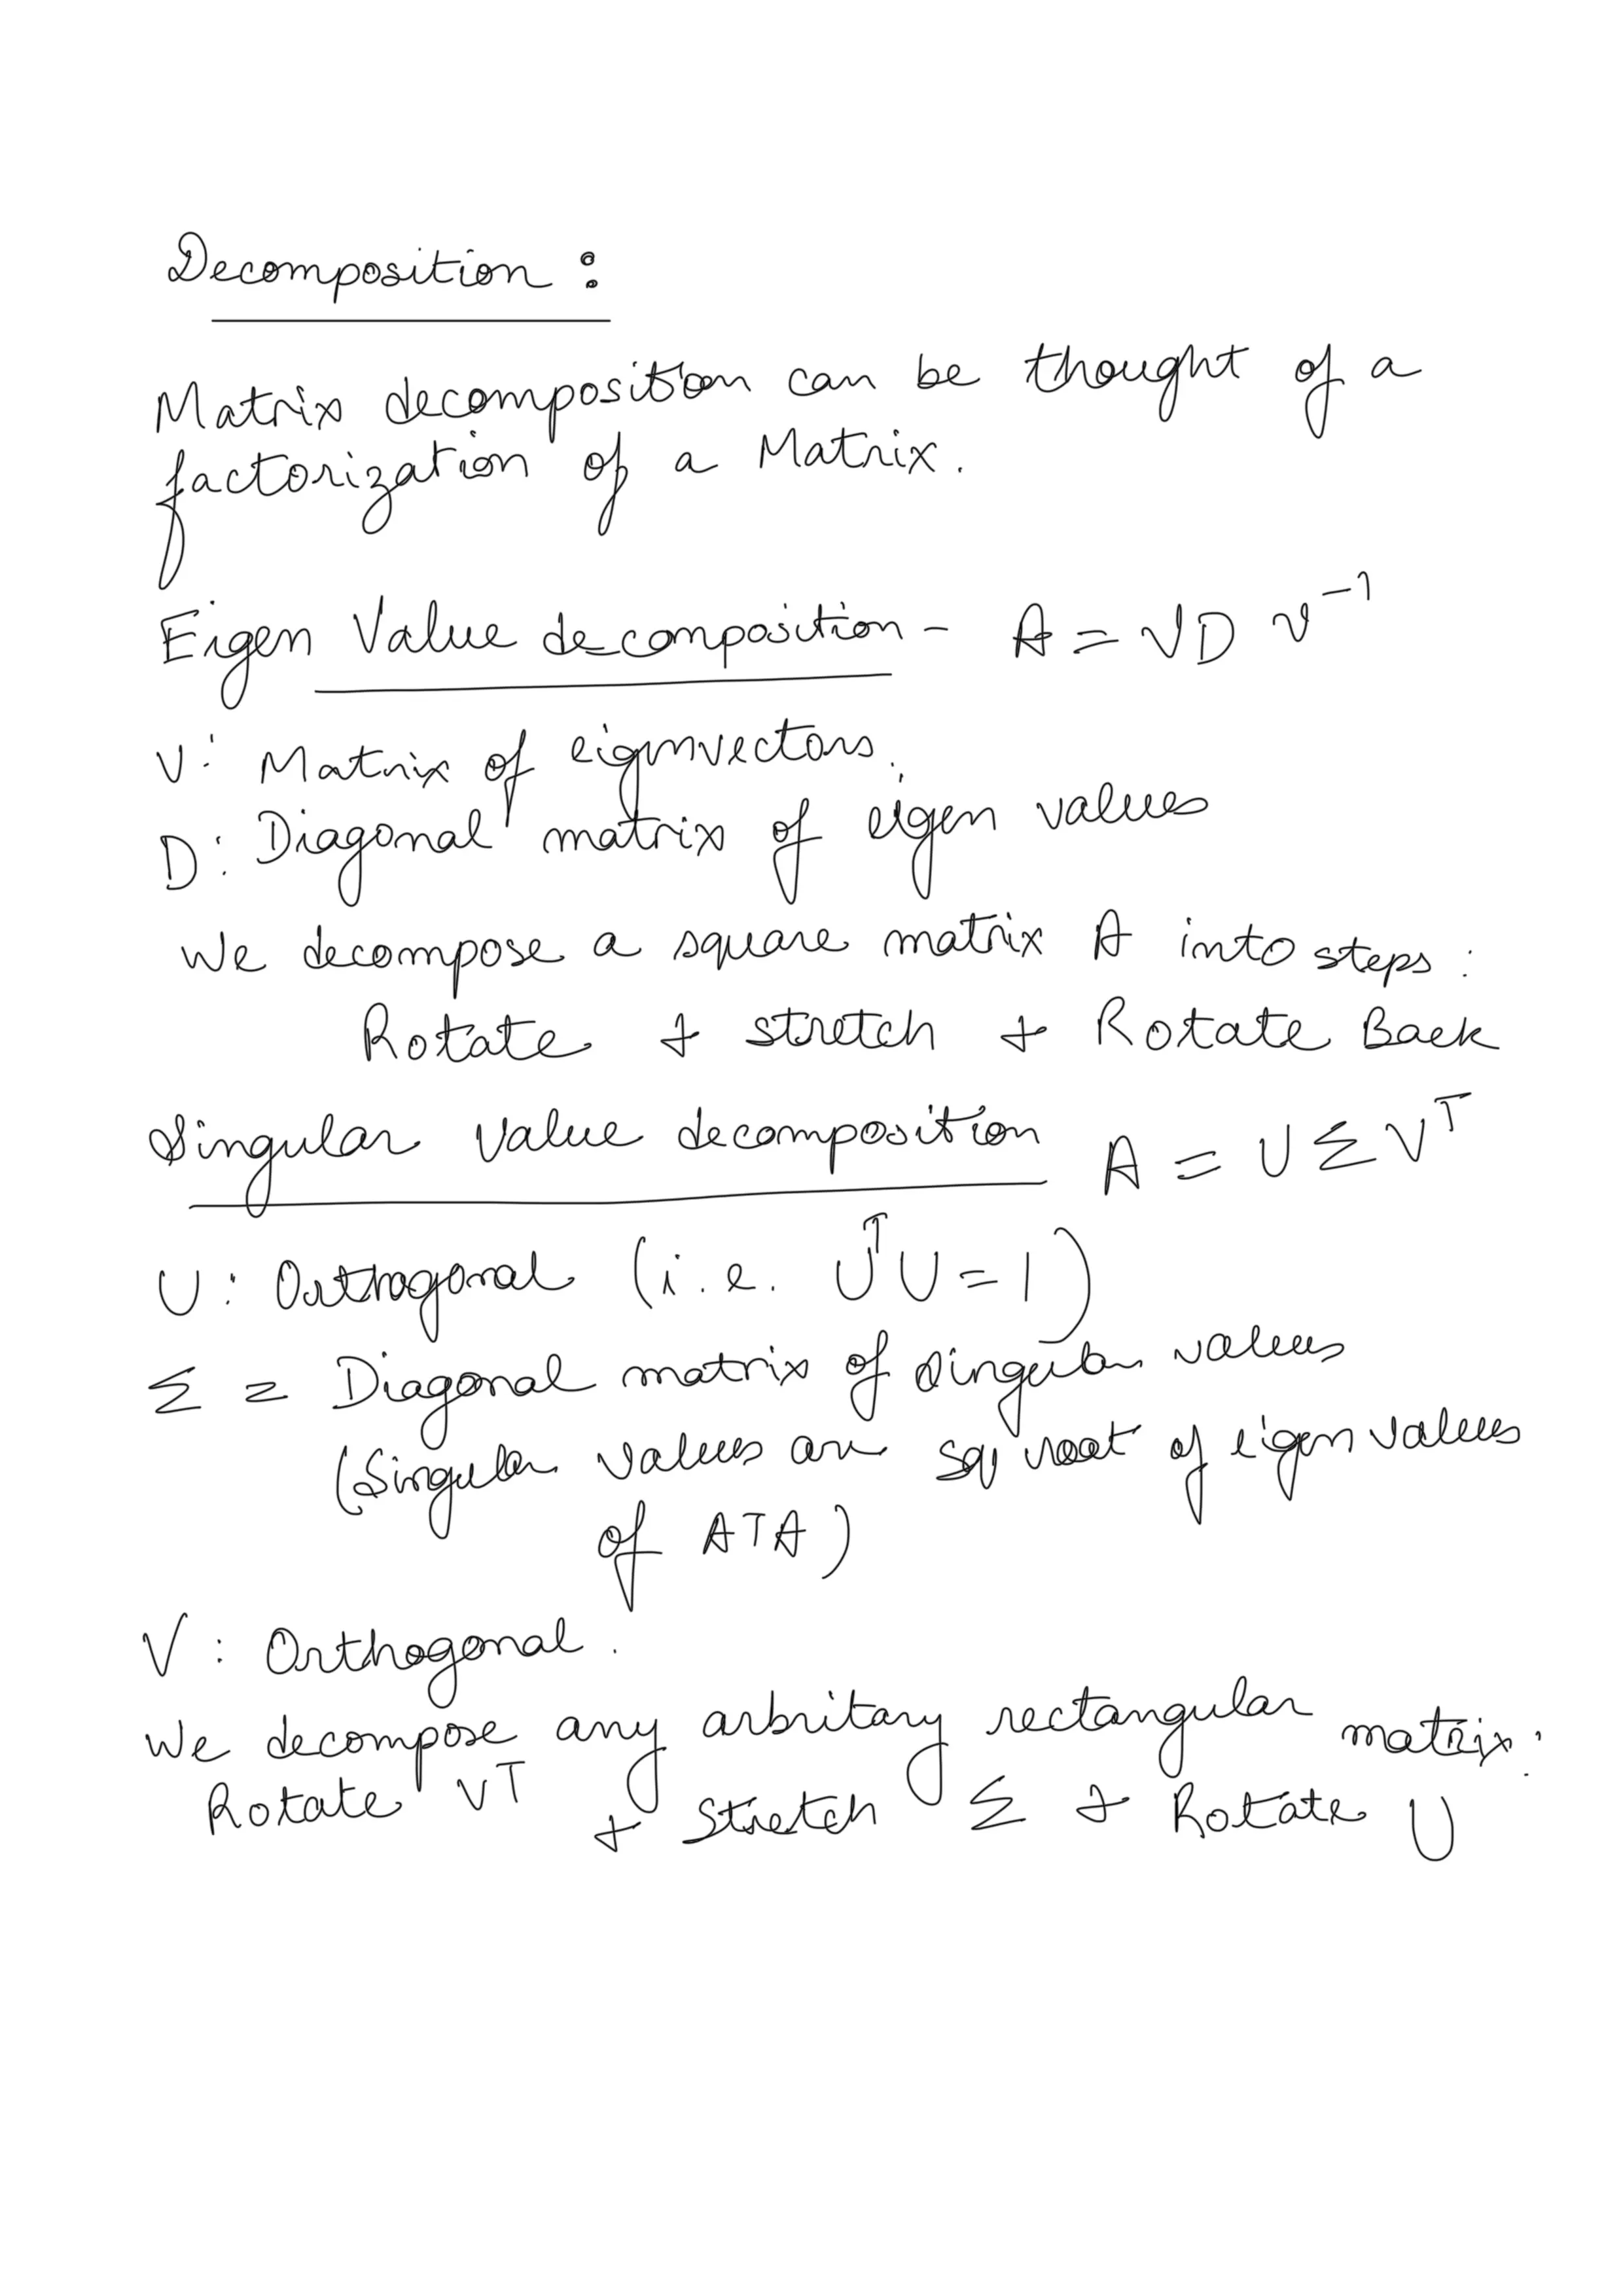 Decomposition :
Matrix decomposition can be thought of a
factorization of a Matrix.
Eigen Value decomposition - A = VD V⁻¹
V: Matrix of eigenvectors.
D: Diagonal matrix of eigen values
We decompose a square matrix A into steps :
Rotate + stretch + Rotate Back
Singular Value decomposition A = UΣVᵀ
U: Orthogonal (i.e. UᵀU = 1)
Σ = Diagonal matrix of singular values
(Singular values are sq root of eigen values
of ATA)
V : Orthogonal.
We decompose any arbritary rectangular matrix:
Rotate VT + Stretch Σ + Rotate U